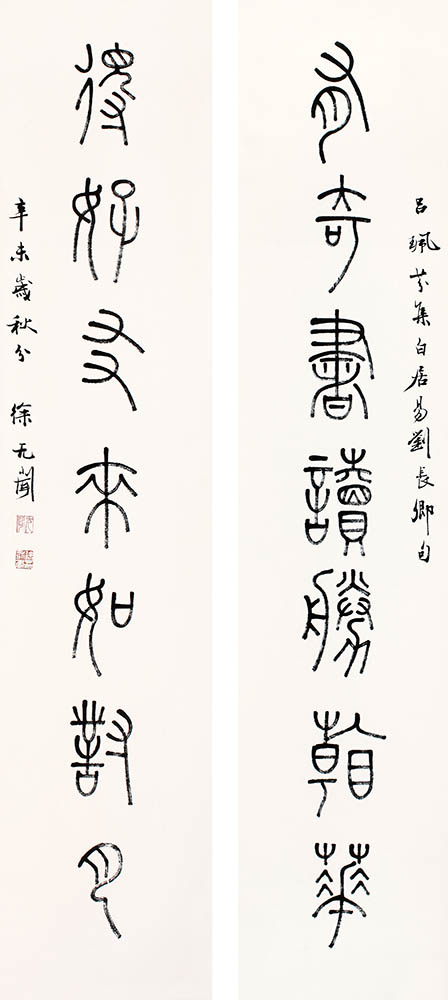 吕珮芬集白居易劉長卿句
有奇書讀勝看華
得好友來如對月
辛未歲秋分 徐无聞